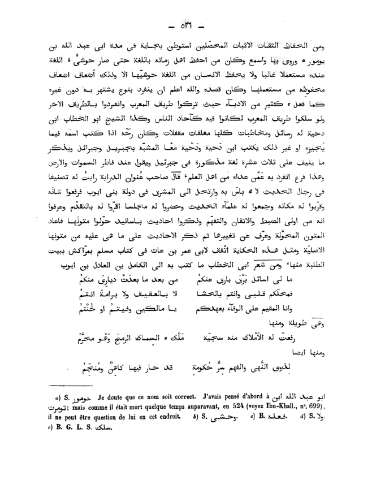 — ٥٣١ —
ومن الحفاظ الثقات الاثبات المحصلين استوطن بجاية في مدة ابي عبد الله بن
يومور a وروى بها واسمع وكان من احفظ اهل زمانه باللغة حتى صار حوشي b اللغة
عنده مستعملا غالبا ولا يحفظ الانسان من اللغة حوشيها الا وذلك اضعاف اضعاف
محفوظه من مستعملها وكان قصده والله اعلم ان ينفرد بنوع يشتهر به دون غيره
كما فعل c كثير من الادباء حيث تركوا طريق المعرب وانفردوا بالطريق الآخر
ولو سلكوا طريق المعرب لكانوا فيه كآحاد الناس وكذا الشيخ ابو الخطاب ابن
دحية له رسائل ومخاطبات كلها مغلقات مقفلات وكان رحه اذا كتب اسمه فيما
يجيزه او غير ذلك يكتب ابن دحية ودحية معا المشبه بجبريل وجبرائل ويذكر
ما ينيف على ثلاث عشرة لغة مذكورة في جبرئيل ويقول عند فاطر السموات والارض
وهذا فرع انفرد به عمن عداه من اهل العلم، قال صاحب عنوان الدراية رايت له تصنيفا
في رجال الحديث لا d باس به وارتحل الى المشرق في دولة بني ايوب فرفعوا شانه
وقربوا له مكانه وجمعوا له علماء الحديث وحضروا له مجلسا اقروا له بالتقدم وعرفوا
انه من اولي الضبط والاتقان والتفهم وذكروا احاديث باسانيد حولوا متونها فاعاد
المتون المحولة وعرف عن تغييرها ثم ذكر الاحاديث على ما هي عليه من متونها
الاصلية ومثل هذه الحكاية اتفقت لابي عمر بن عات في كتاب مسلم بمراكش ببيت
الطلبة منها، ومن شعر ابي الخطاب ما كتب به الى الكامل بن العادل بن ايوب
ما لي اسائل برق بارق عنكم من بعد ما بعدت ديارى منكم
فمحلكم قلبي وانتم بالحشا لا بالعقيق ولا برامة انتم
وانا المقيم على الوفاء بعهدكم يا مالكين وفيتم او خنتم
وفي طويلة ومنها
رفعت له الاملاك منه سجية ملك e السماك الرمح وهو محرم
ومنها ايضا
لذوي النهى والفهم سر حكومة قد حار فيها كاهن ومنجم
a) S. حومور. Je doute que ce nom soit correct. J'avais pensé d'abord à ابو عبد الله ابن
التومرت mais comme il était mort quelque temps auparavant, en 524 (voyez Ibn-Khall., n°. 699),
il ne peut être question de lui en cet endroit. b) S. وحشي. c) B. فعله. d) S. ولا.
e) B. G. L. S. ملكه.